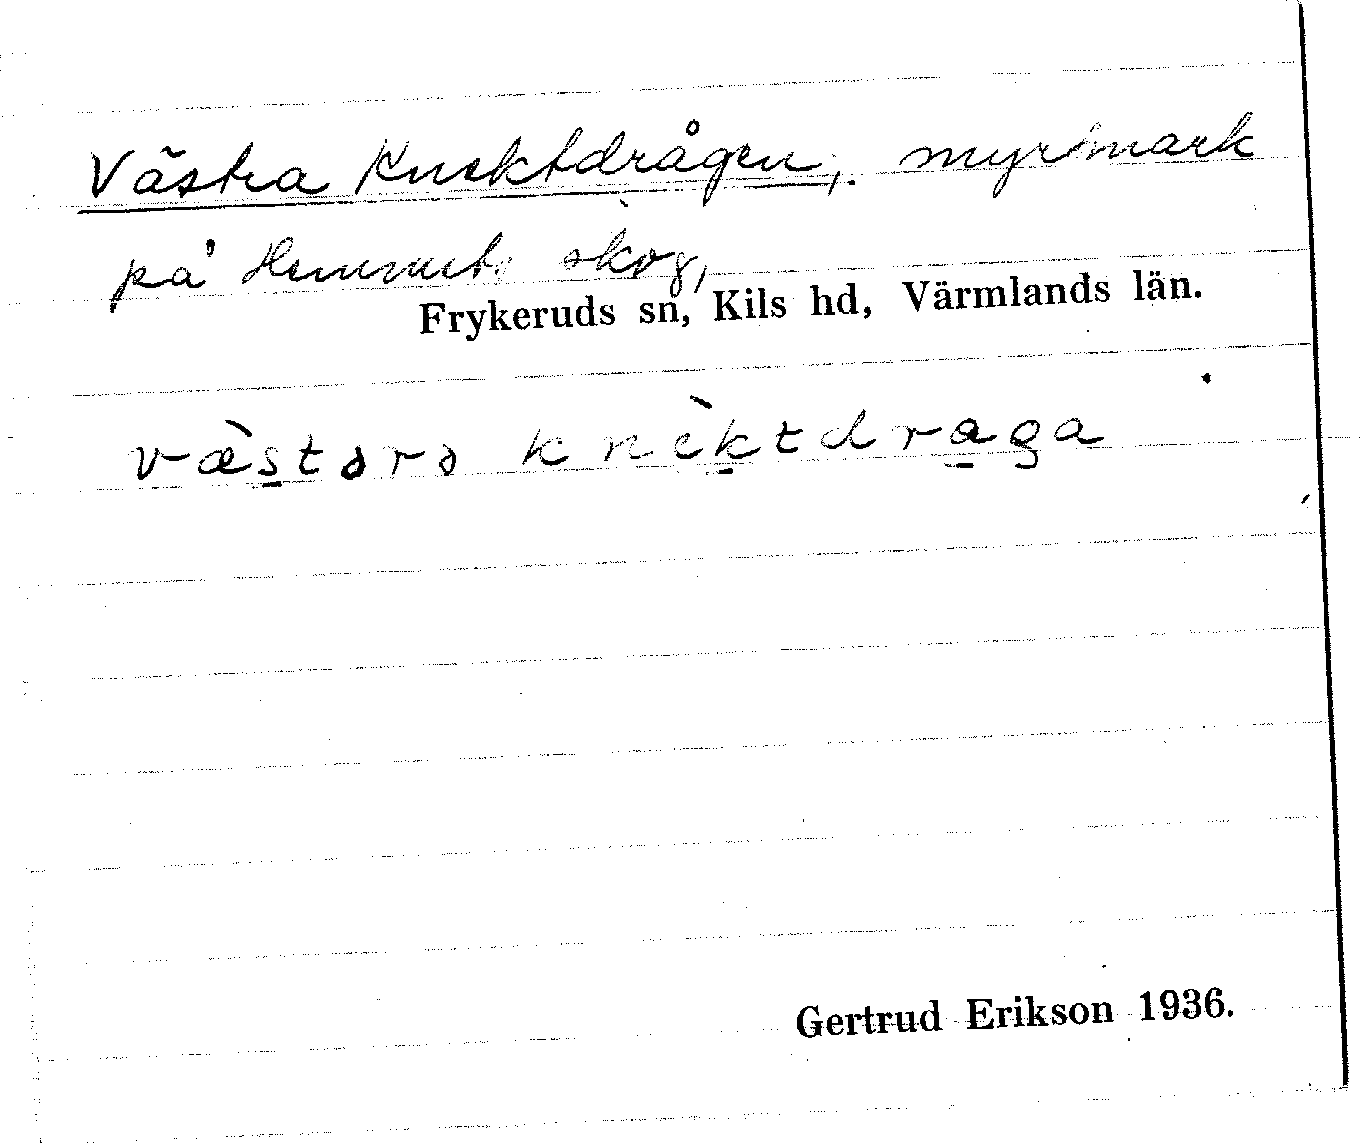 Västra Knektdrågen, myrmark
på Hemmets skog,
Frykeruds sn, Kils hd, Värmlands län.
væ̀stərə knèktdraga
Gertrud Erikson 1936.